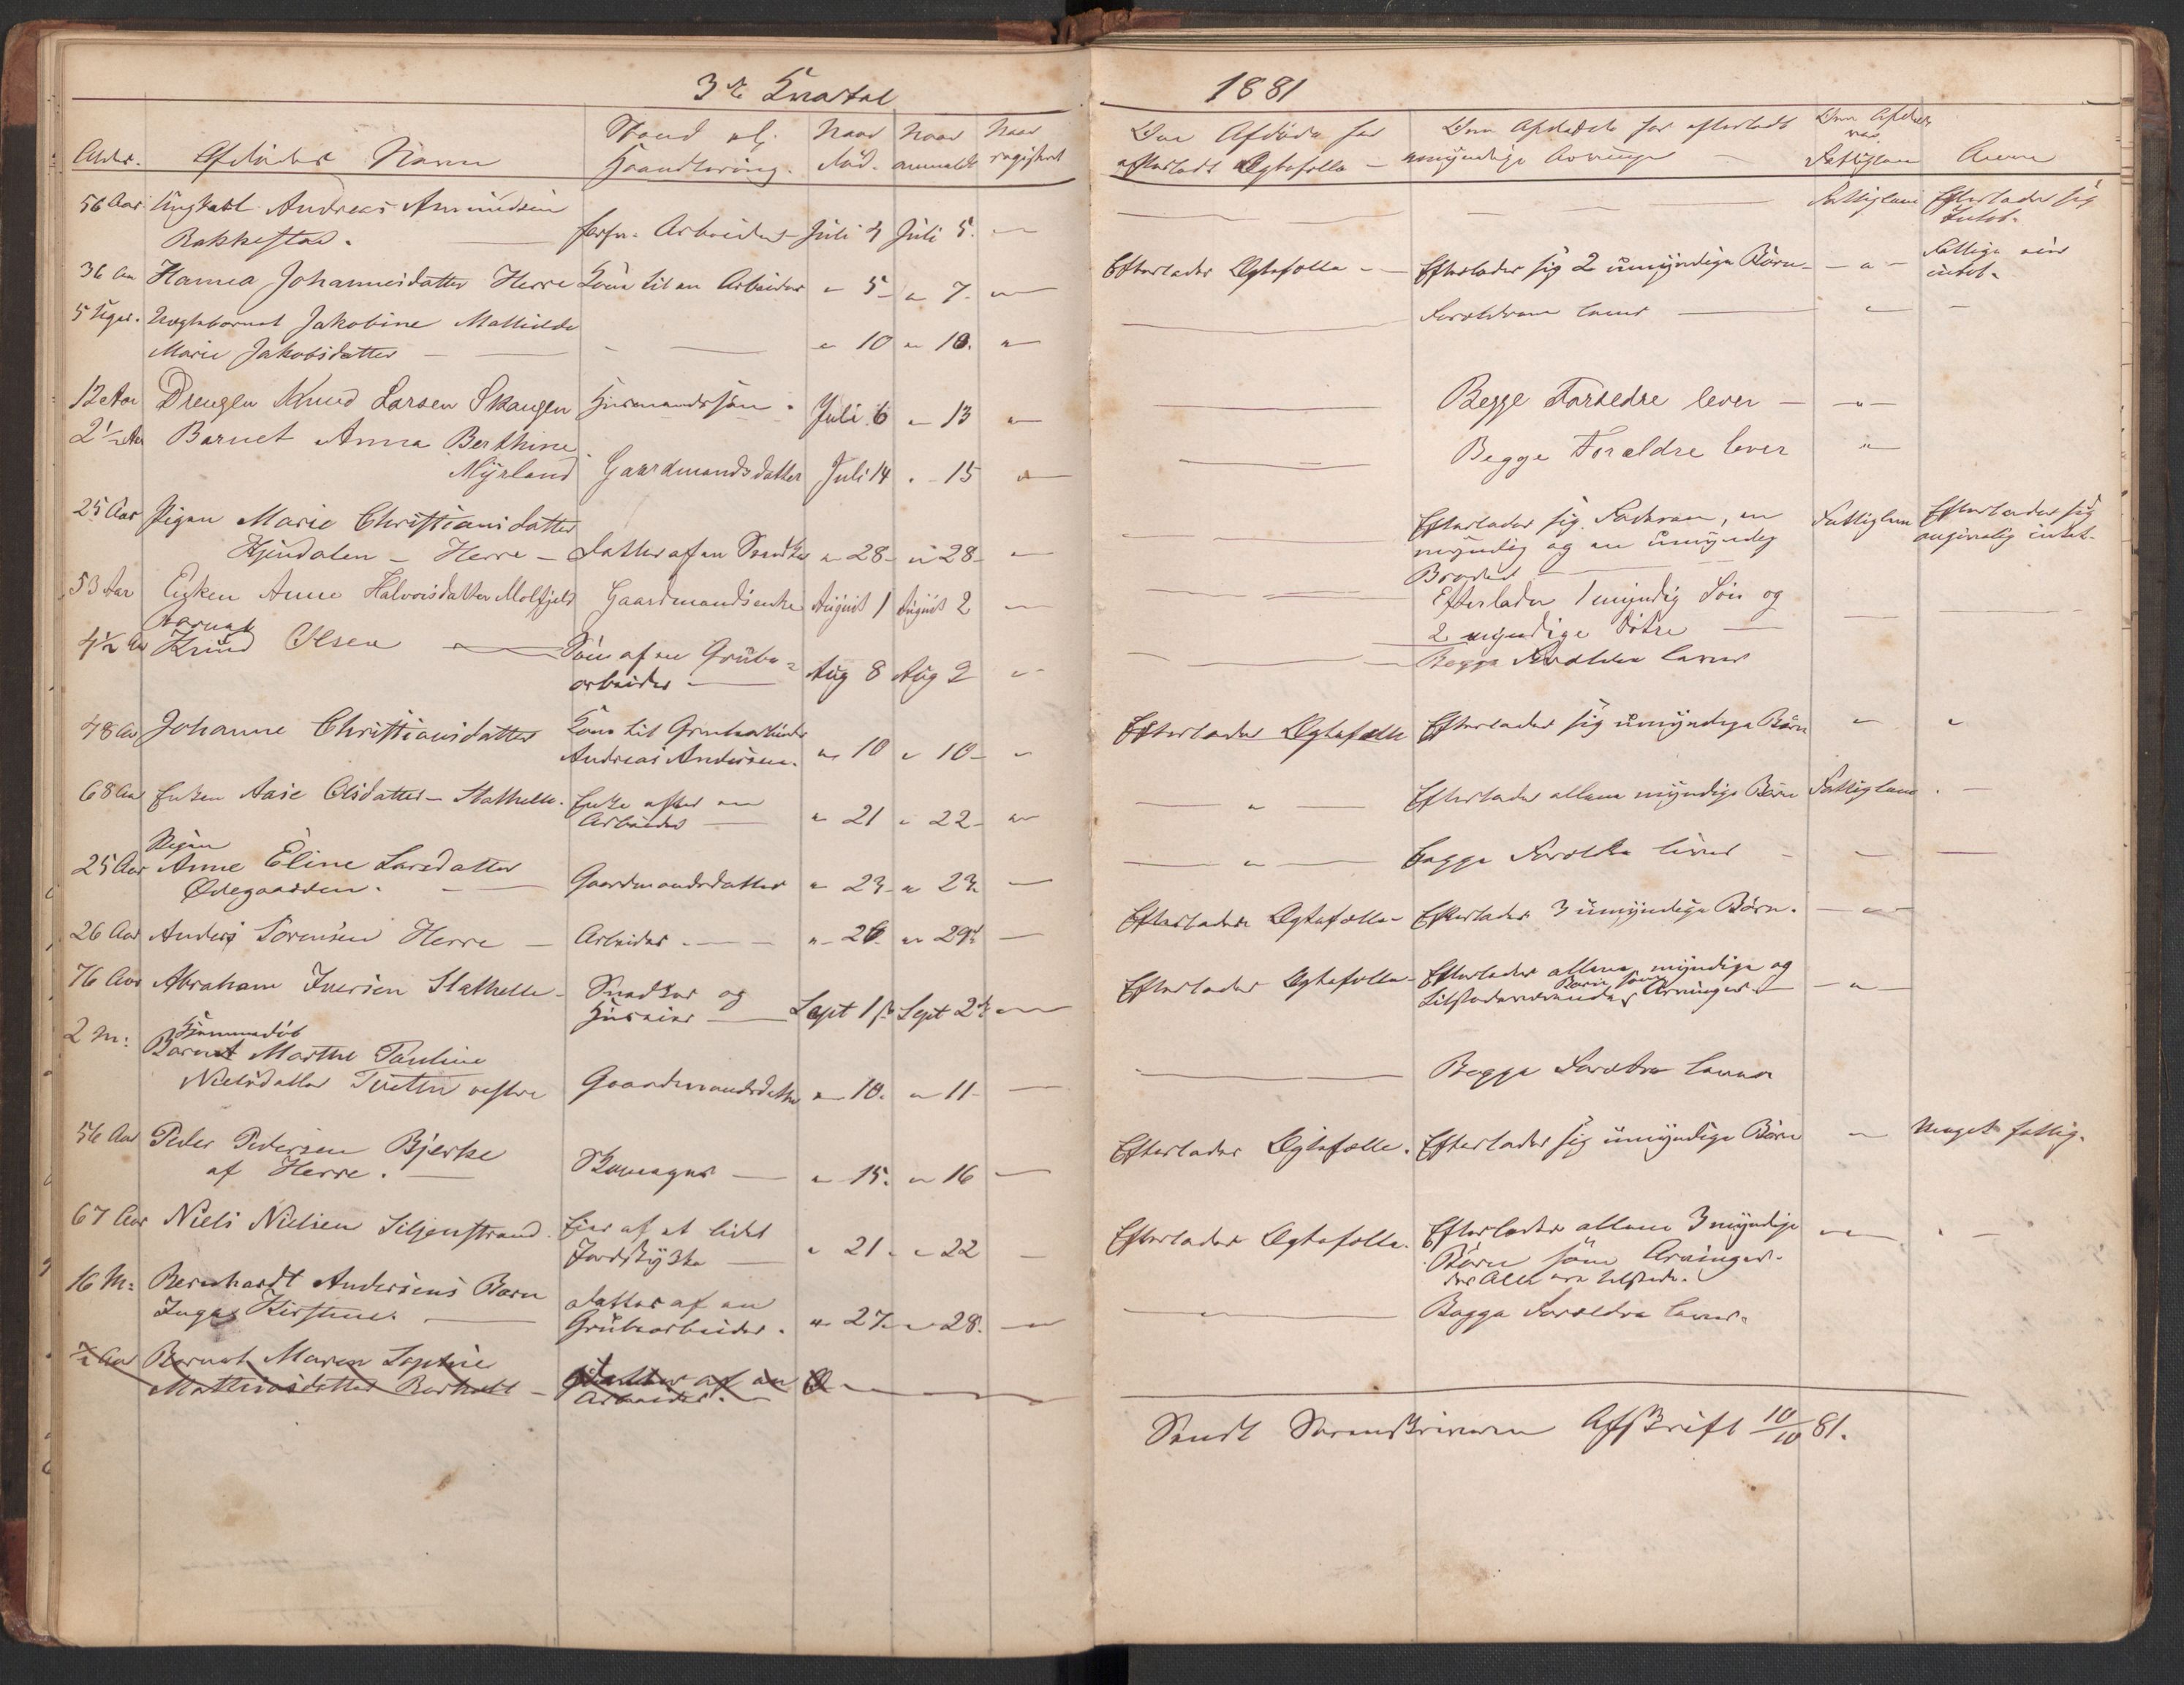 3die Kvartal
1881
Alder. Afdødes Navn Stand el. Haandtering. Naar død. Naar anmeldt Naar registreret
Den Afdøde har efterladt Ægtefælle - Den Afdøde har efterladt umyndige Arvinger Den Afdøde var Fattiglem Anm
56 Aar Ungkarl Andreas Amundsen
Bakkestad. forhv. Arbeider - Juli 4 Juli 5. Fattiglem Efterlader sig Intet.
36 Aar Hanna Johannesdatter Herre Kone til en Arbeider " 5 - " 7. Efterlader Ægtefælle - Efterlader sig 2 umyndige Børn - " - Fattige eier intet.
5 Uger. Jakobine Mathilde
Marie Jakobsdatter " 10 " 10. Forældrene lever
12 Aar Drengen Knud Larsen Skaugen Husmandssøn. Juli 6 " 13 Begge Forældre lever - " -
2½ Aar Barnet Anna Berthine
Myrland Gaardmandsdatter Juli 14 " 15 Begge Forældre lever "
25 Aar Pigen Marie Christiansdatter
- Herre - Datter af en Snedker " 28 - " 28 - Efterlader sig Faderen, en
myndig og en umyndig
Broder Fattiglem Efterlader sig intet.
53 Aar Enken Anne Halvorsdatter Molfjeld Gaardmandsenke August 1 August 2 Efterlader 1 myndig Søn og
2 myndige Døtre
4½ Aar Barnet
Knud Olsen Søn af en Grube=
arbeider Aug 8 Aug 9 Begge Forældre lever
48 Aar Johanne Christiansdatter Kone til Grubearbeider
Andreas Andersen. " 10 " 10 - Efterlader Ægtefælle Efterlader sig umyndige Børn " "
68 Aar Enken Aase Olsdatter - Stathelle. Enke efter en
Arbeider " 21 " 22 - " Efterlader allene myndige Børn Fattiglem
25 Aar Pigen
Anne Eline Larsdatter
Ødegaarden. Gaardmandsdatter " 23 - " 23. " Begge Forældre lever
26 Aar Anders Sørensen Herre - Arbeider. " 26. " 29. Efterlader Ægtefælle - Efterlader 3 umyndige Børn. - " -
76 Aar Abraham Iversen Stathelle - Snedker og
Huseier Sept 1ste Sept 2den Efterlader Ægtefælle - Efterlader allene myndige og
tilstedeværende Børn som Arvinger. - " -
2 M: Hjemmedøb
Barnet Marthe Pauline
Nielsdatter Tveten vestre Gaardmandsdatter " 10. " 11 - Begge Forældre lever
56 Aar Peder Pedersen Bjerke
af Herre. Skomager " 15. " 16 Efterlader Ægtefælle. Efterlader sig umyndige Børn " Meget fattig.
67 Aar Niels Nielsen Siljenstrand. Eier af et lidet
Jordstykke " 21 - " 22 Efterlader Ægtefælle. Efterlader allene 3 myndige
Børn som Arvinger.
der Alle ere tilstede.
16 M: Bernhardt Andersens Barn
Inga Kirstine. Datter af en
Grubearbeider. " 27. " 28. " Begge Forældre lever.
½ Aar Barnet Maren Sophie
Mathiasdatter - Datter af en
Arbeider.
Sendt Sorenskriveren Afskrift 10/10 81.